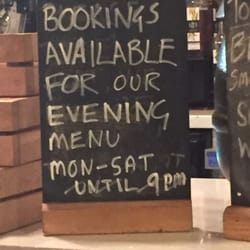 BOOKINGS
AVAILABLE
FOR OUR
EVENING
MENU
MON-SAT
UNTIL 9pm